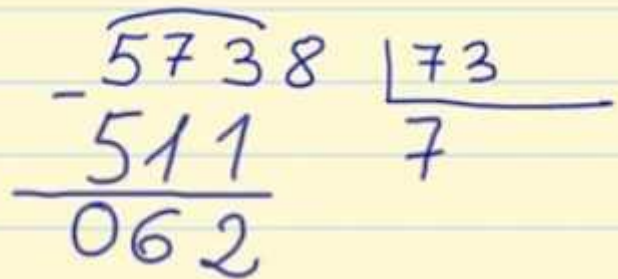 5738 73
- 511 7
062